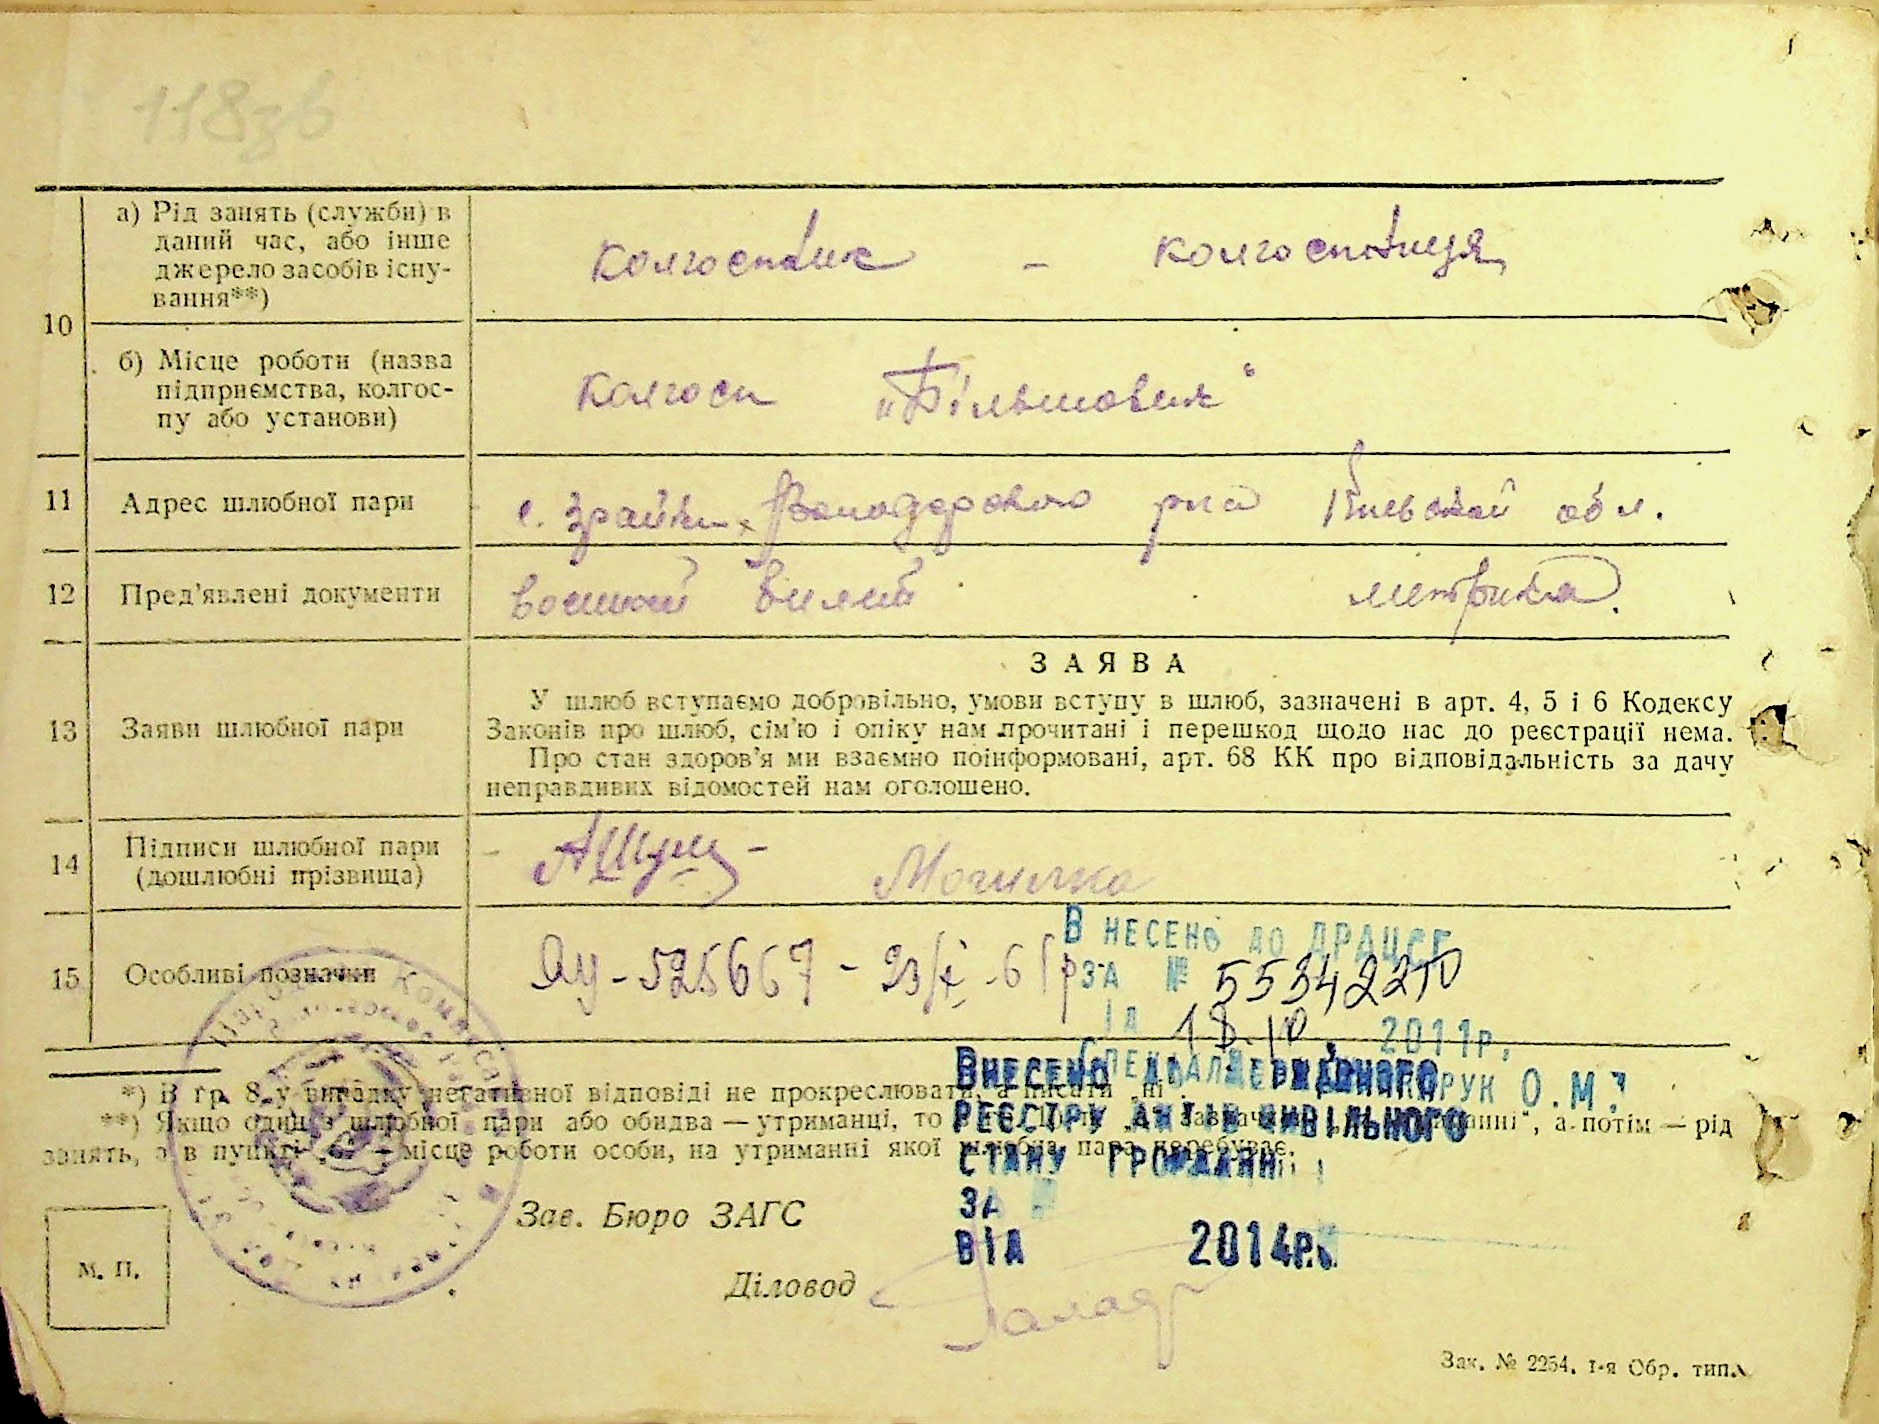 118зв
10
а) Рід занять (служби) в
даний час, або інше
джерело засобів існу-
вання**)
колгоспник – колгоспниця
б) Місце роботи (назва
підприємства, колгос-
пу або установи)
колгосп „Більшовик“
11 Адрес шлюбної пари
с. Зрайки, Володарського р-на Київської обл.
12 Пред'явлені документи
воєнний билет метрика.
ЗАЯВА
13 Заяви шлюбної пари
У шлюб вступаємо добровільно, умови вступу в шлюб, зазначені в арт. 4, 5 і 6 Кодексу
Законів про шлюб, сім'ю і опіку нам прочитані і перешкод щодо нас до реєстрації нема.
Про стан здоров'я ми взаємно поінформовані, арт. 68 КК про відповідальність за дачу
неправдивих відомостей нам оголошено.
14 Підписи шлюбної пари
(дошлюбні прізвища)
Могилка
15 Особливі позначки
ЯУ-525667 -
ВНЕСЕНО ДО ДРАЦСГ
ЗА № 55342210
18.10. 2011р.
О.М.
ВНЕСЕНО ДО ДЕРЖАВНОГО
РЕЄСТРУ АКТІВ ЦИВІЛЬНОГО
СТАНУ ГРОМАДЯН
ЗА №
ВІД 2014р.
*) В гр. 8 у випадку негативної відповіді не прокреслювати, а писати „ні
**) Якщо один з шлюбної пари або обидва — утриманці, то а потім — рід
занять, а в пункті „б“ — місце роботи особи, на утриманні якої шлюбна пара перебуває.
Зав. Бюро ЗАГС
М. П.
Діловод
Зак. № 2254. 1-я Обр. тип.